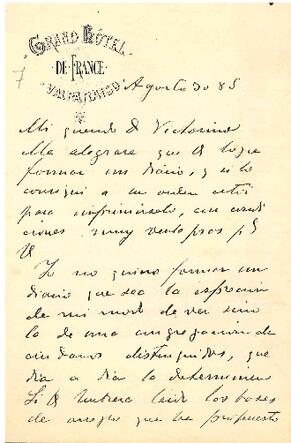 GRAND HÔTEL
DE FRANCE
VALPARAISO
7
Agosto 30 85
Mi querido D Victorino
Me alegrare que U logre
formar un diario, y si lo
consigue
para imprimirselo, en condi
ciones muy ventajosas pa
U
Yo no quiero formar un
diario que sea la espresion
de mi modo de ver sino
la de una congregacion de
ciudadanos distinguidos, que
dia a dia lo determinen
Si U hubiera leido las bases
de arreglo que he propuesto